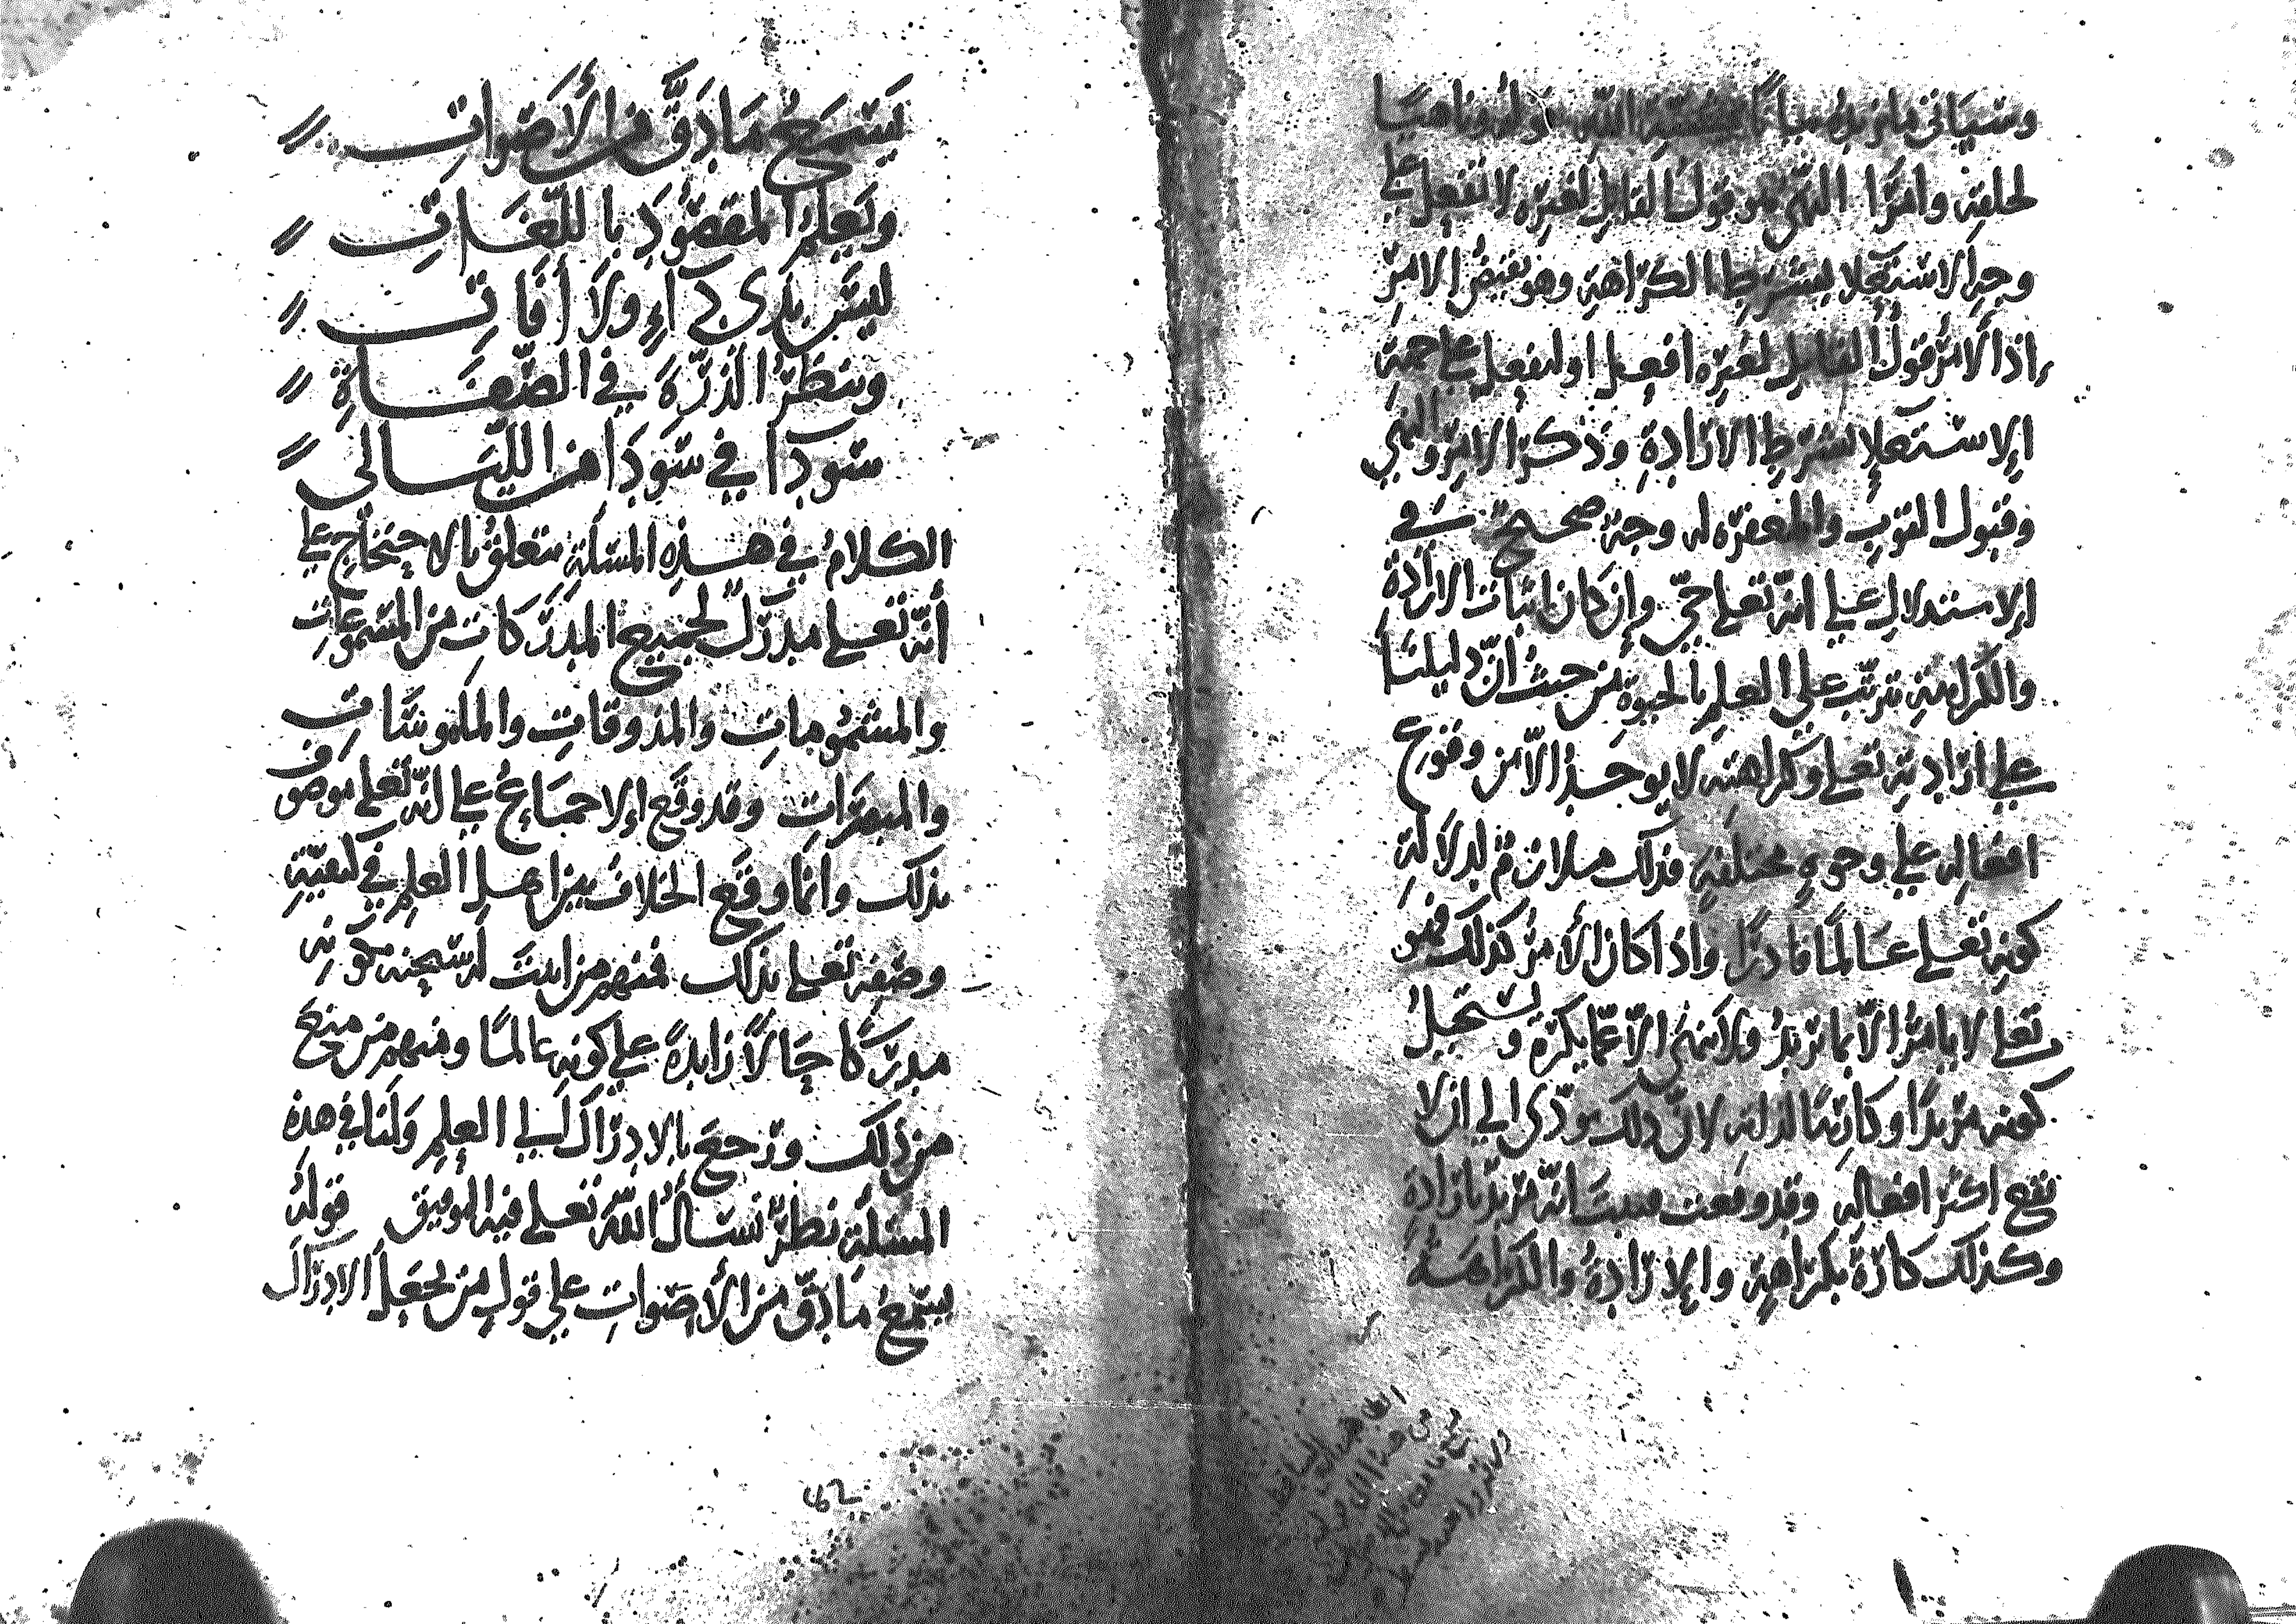 وسيأتي مزيد بيان إن شاء الله قوله وناهيا
لخلقه وامرا النهي هو قول القايل لغيره لا تفعل على
وجه الاستعلا بشرط الكراهة وهو نقيض الامر
اذ الأمر قول القايل لغيره افعل او ليفعل على جهة
الاستعلا بشرط الارادة وذكر الامر والنهي
وقبول التوب والمعفره له وجه صحيح في
الاستدلال على انه تعلى حي وإن كان اثبات الارادة
والكراهة تترتب على العلم بالحيوة من حيث ان دليلنا
على ارادته تعلى وكراهته لا يوجد الا من وقوع
افعاله على وجوه مختلفة فذلك ملازم لدلالة
كونه تعلى عالما قادرا واذا كان الأمر كذلك فهو
تعلى لا يامر الا بما يريد ولا ينهى الا عما يكره ويستحيل
كونه مريدا وكارها لذاته لان ذلك يودى الى ان لا
تقع اكثر افعاله وقد وقعت فثبت انه مريد بارادة
وكذلك كاره بكراهة والإرادة والكراهة
يسمع ما دق من الأصوات
ويعلم المقصود باللغات
ليس بذى داء ولا أفات
وينظر الذرة في الصفاة
سودا في سودا من الليالى
الكلام في هذه المسألة متعلق بالاحتجاج على
أنه تعلى مدرك لجميع المدركات من المسموعات
والمشمومات والمذوقات والملموسات
والمبصرات وقد وقع الإجماع على انه تعلى موصوف
بذلك وانما وقع الخلاف بين اهل العلم في كيفية
وصفه تعلى بذلك فمنهم من اثبت له سبحنه بكونه
مدركا حالا زايدة على كونه عالما ومنهم من منع
من ذلك ورجع بالادراك الى العلم ولنا في هذه
المسئلة نظر نسأل الله تعلى فيه التوفيق قوله
يسمع ما دق من الأصوات على قول من يجعل الادراك